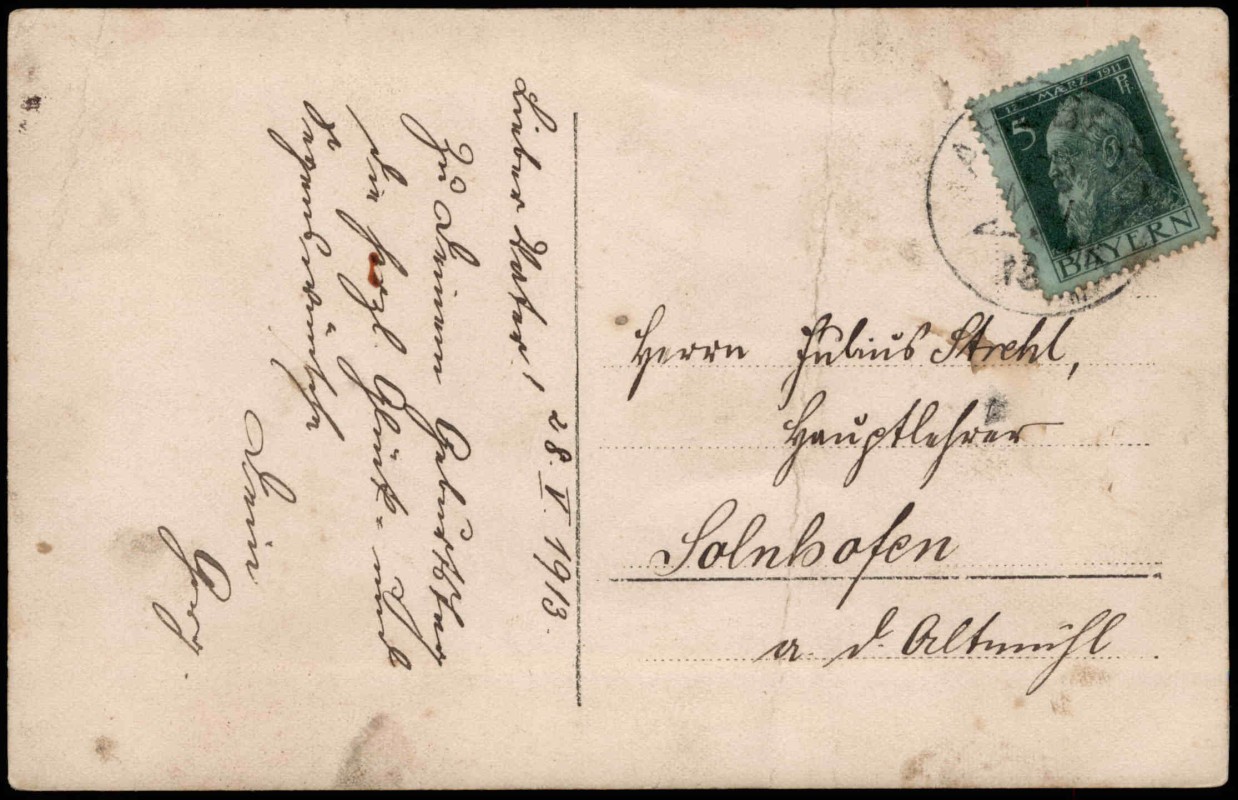 Lieber Vater! 28. V. 1913.
Zu Deinem Geburtstag
die herzl. Glück- und
Segenswünsche
Dein
Georg.
12. MÆRZ 1911
5 Pf
BAYERN
13
Herrn Julius Strehl,
Hauptlehrer
Solnhofen
a. d. Altmühl